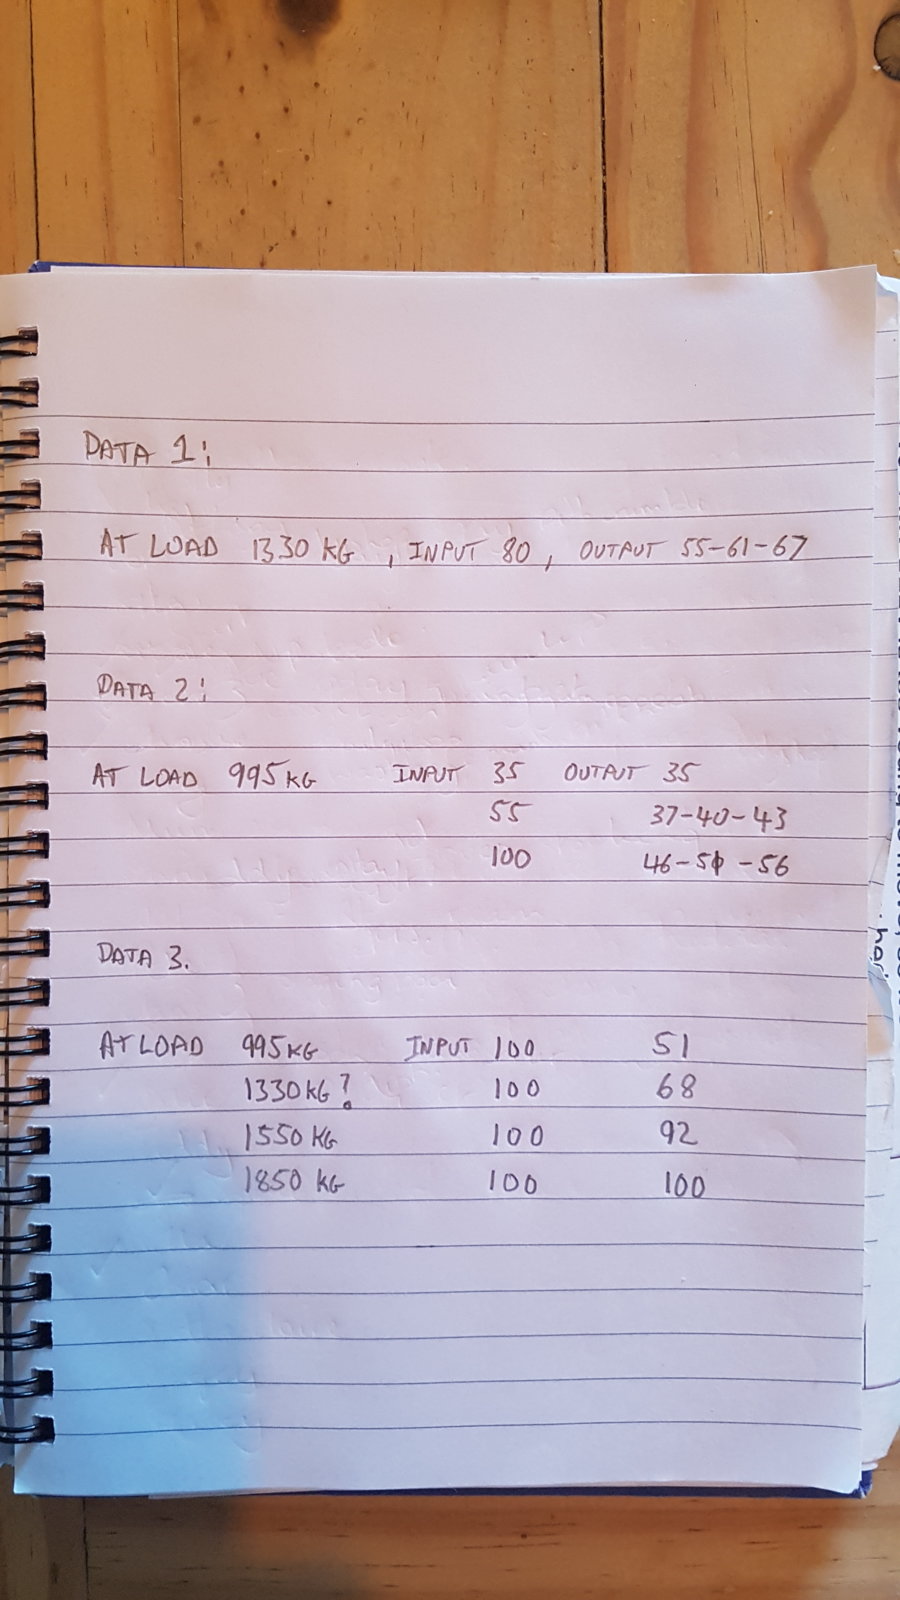 DATA 1:
AT LOAD 1330 KG , INPUT 80 , OUTPUT 55-61-67
DATA 2:
AT LOAD 995KG INPUT 35 OUTPUT 35
55 37-40-43
100 46-51-56
DATA 3.
AT LOAD 995KG INPUT 100 51
1330KG? 100 68
1550 KG 100 92
1850 KG 100 100